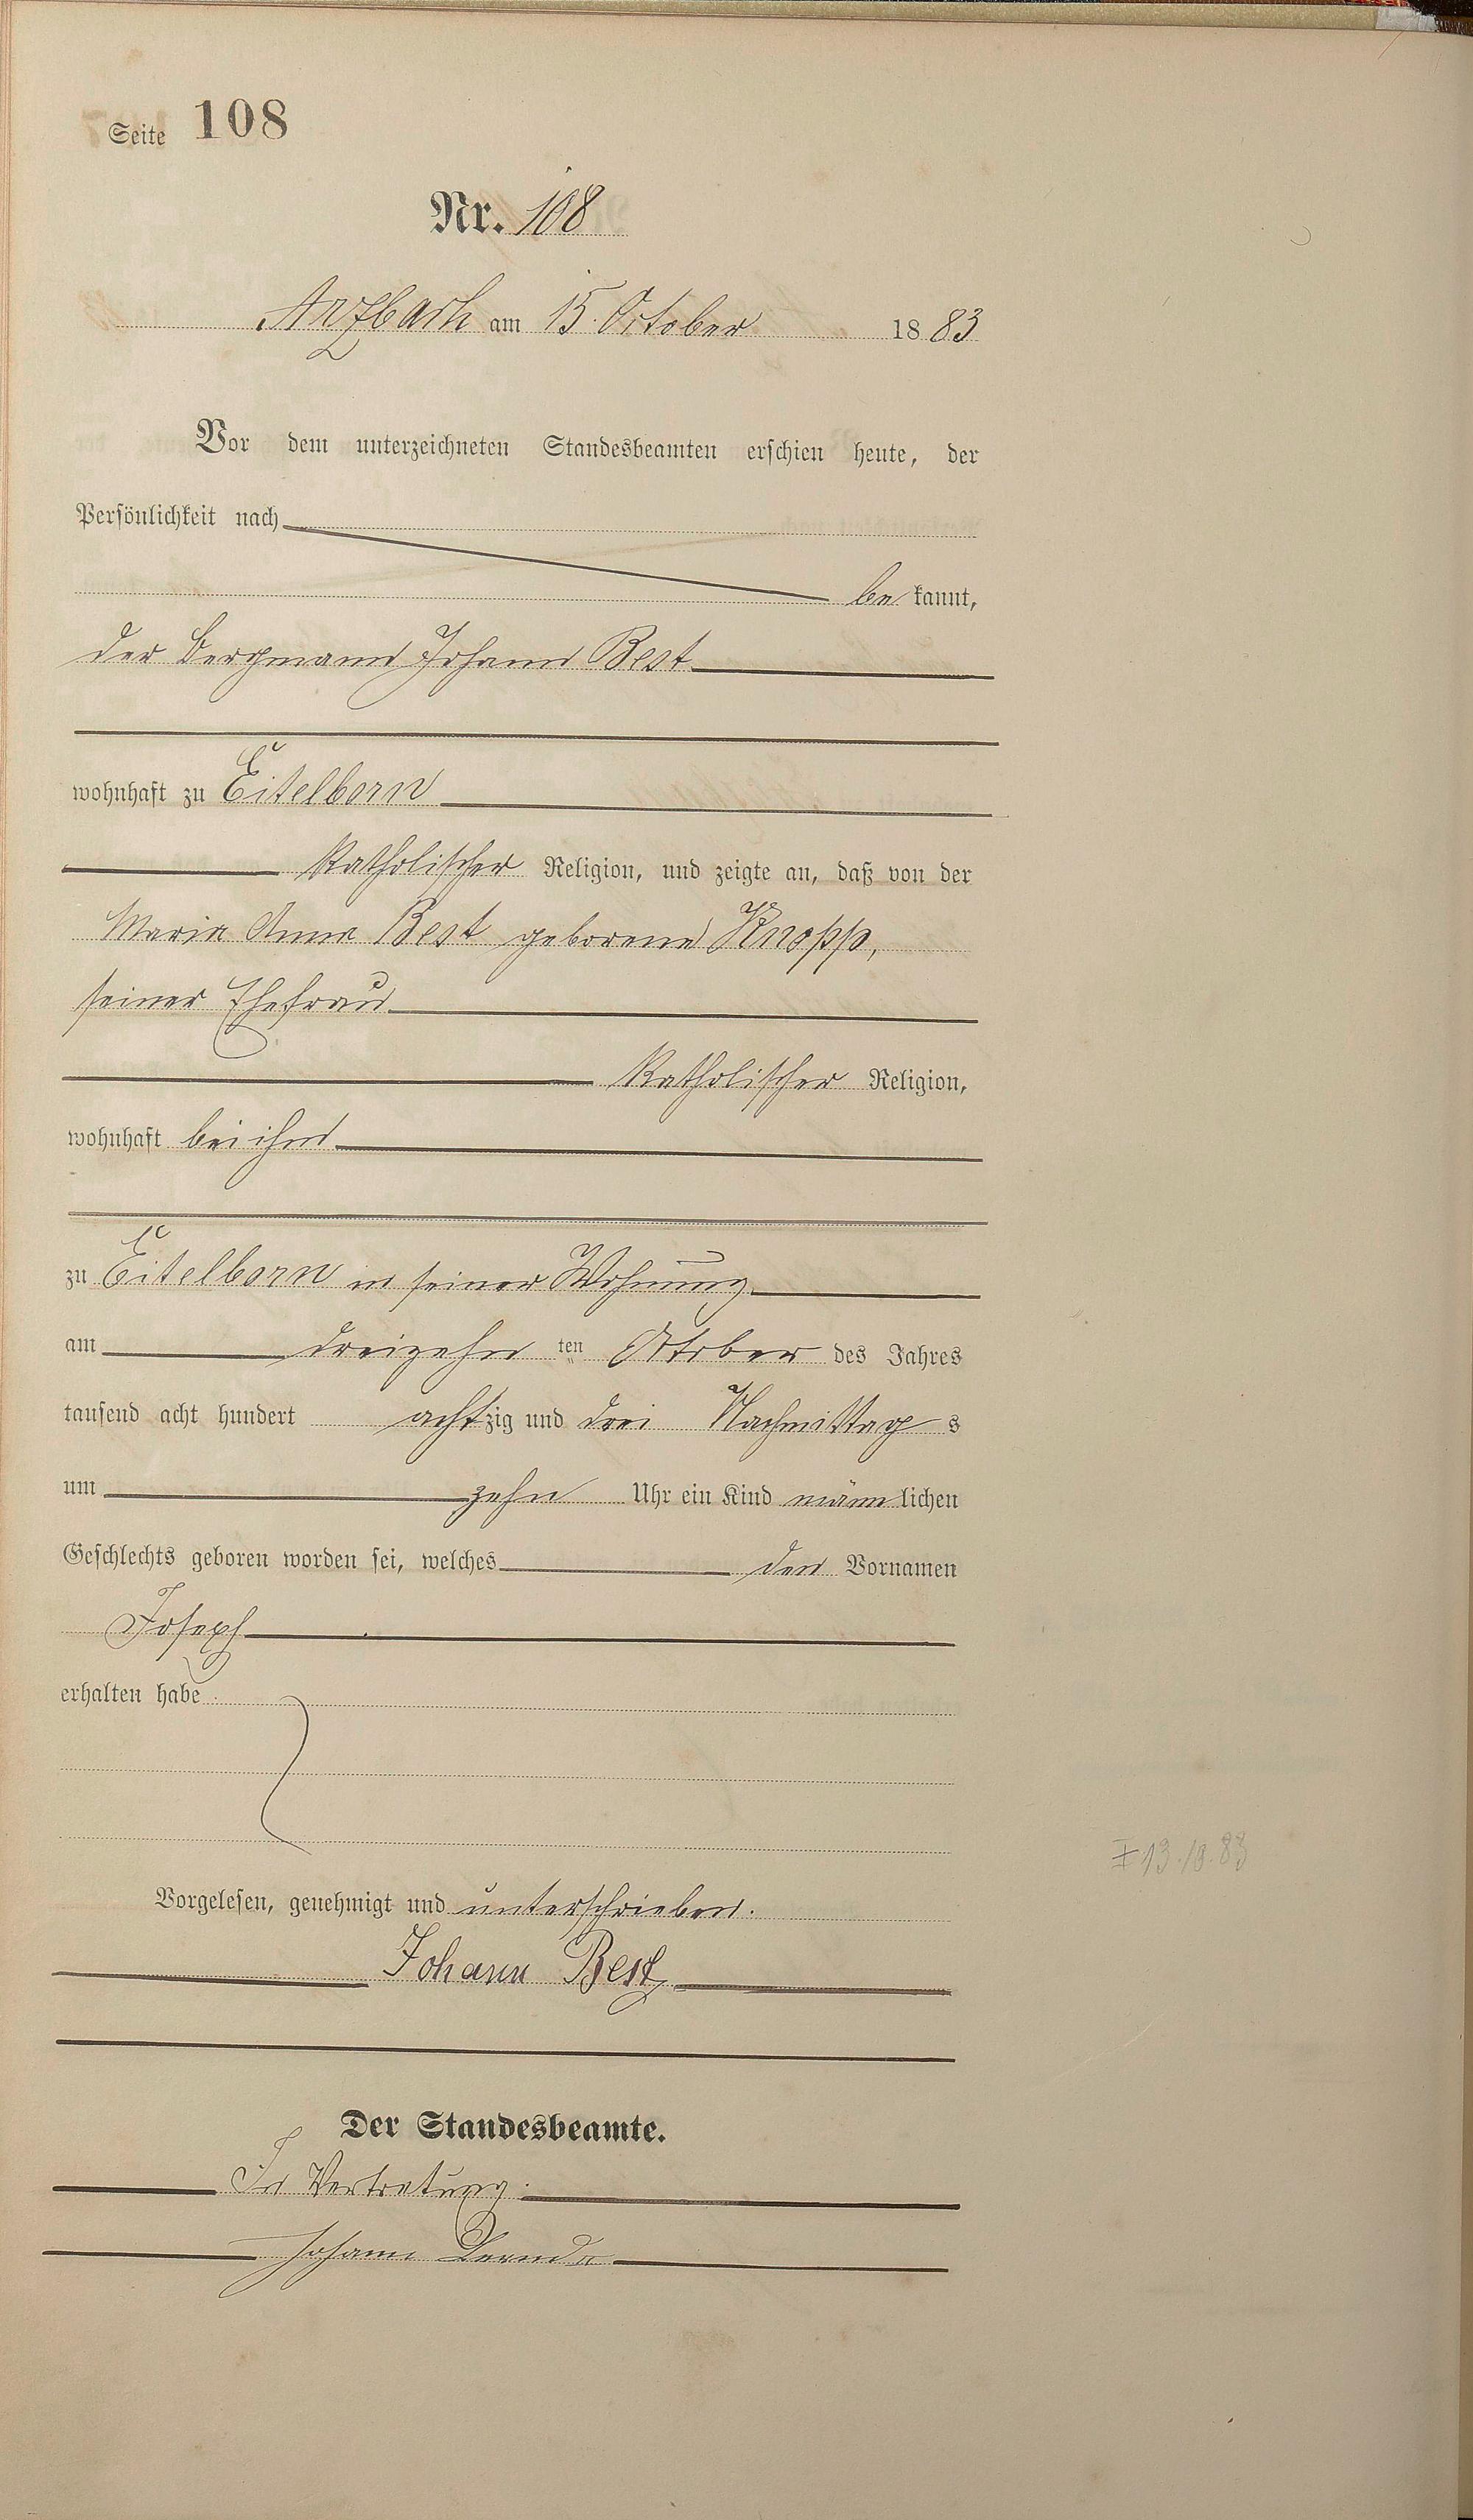 Seite 108
Nr. 108
Arzbach am 15. October 1883
Vor dem unterzeichneten Standesbeamten erschien heute, der
Persönlichkeit nach
be kannt,
der Bergmann Johann Best
wohnhaft zu Eitelborn
katholischer Religion, und zeigte an, daß von der
Maria Anna Best geborene Knopp,
seiner Ehefrau
katholischer Religion,
wohnhaft bei ihm
zu Eitelborn in seiner Wohnung
am dreizehn ten October des Jahres
tausend acht hundert achtzig und drei Nachmittag s
um zehn Uhr ein Kind männlichen
Geschlechts geboren worden sei, welches den Vornamen
Joseph
erhalten habe
13.10.83
Vorgelesen, genehmigt und unterschrieben.
Johann Best
Der Standesbeamte.
In Vertretung.
Johann